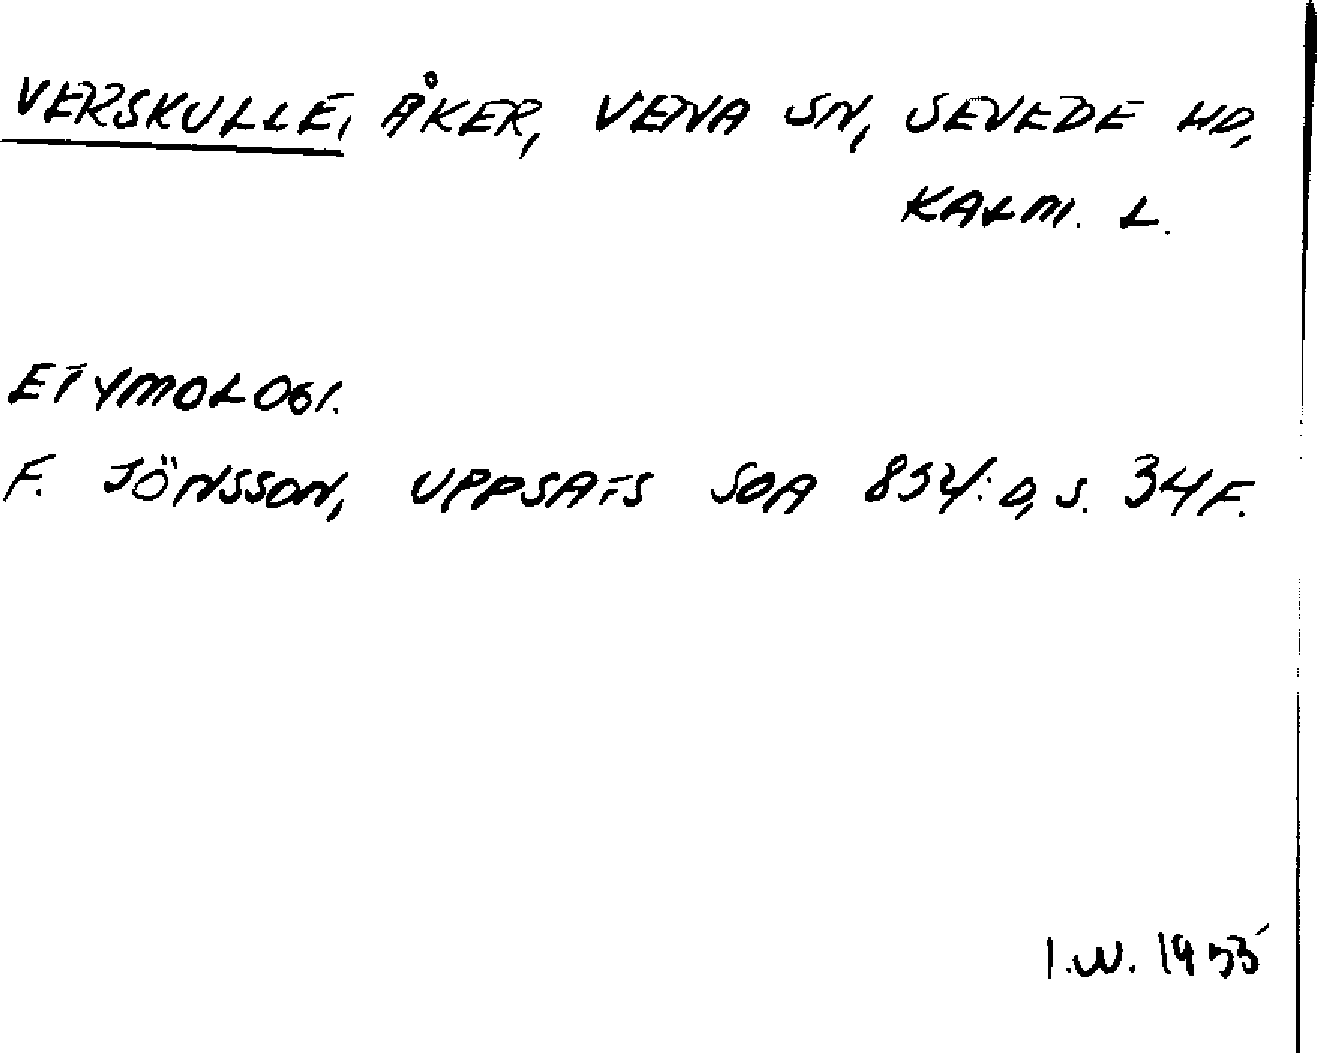 VERSKULLE, ÅKER, VENA SN, SEVEDE HD,
KALM. L.
ETYMOLOGI.
F. JÖNSSON, UPPSATS SOA S. 34 F.
I.W. 1955